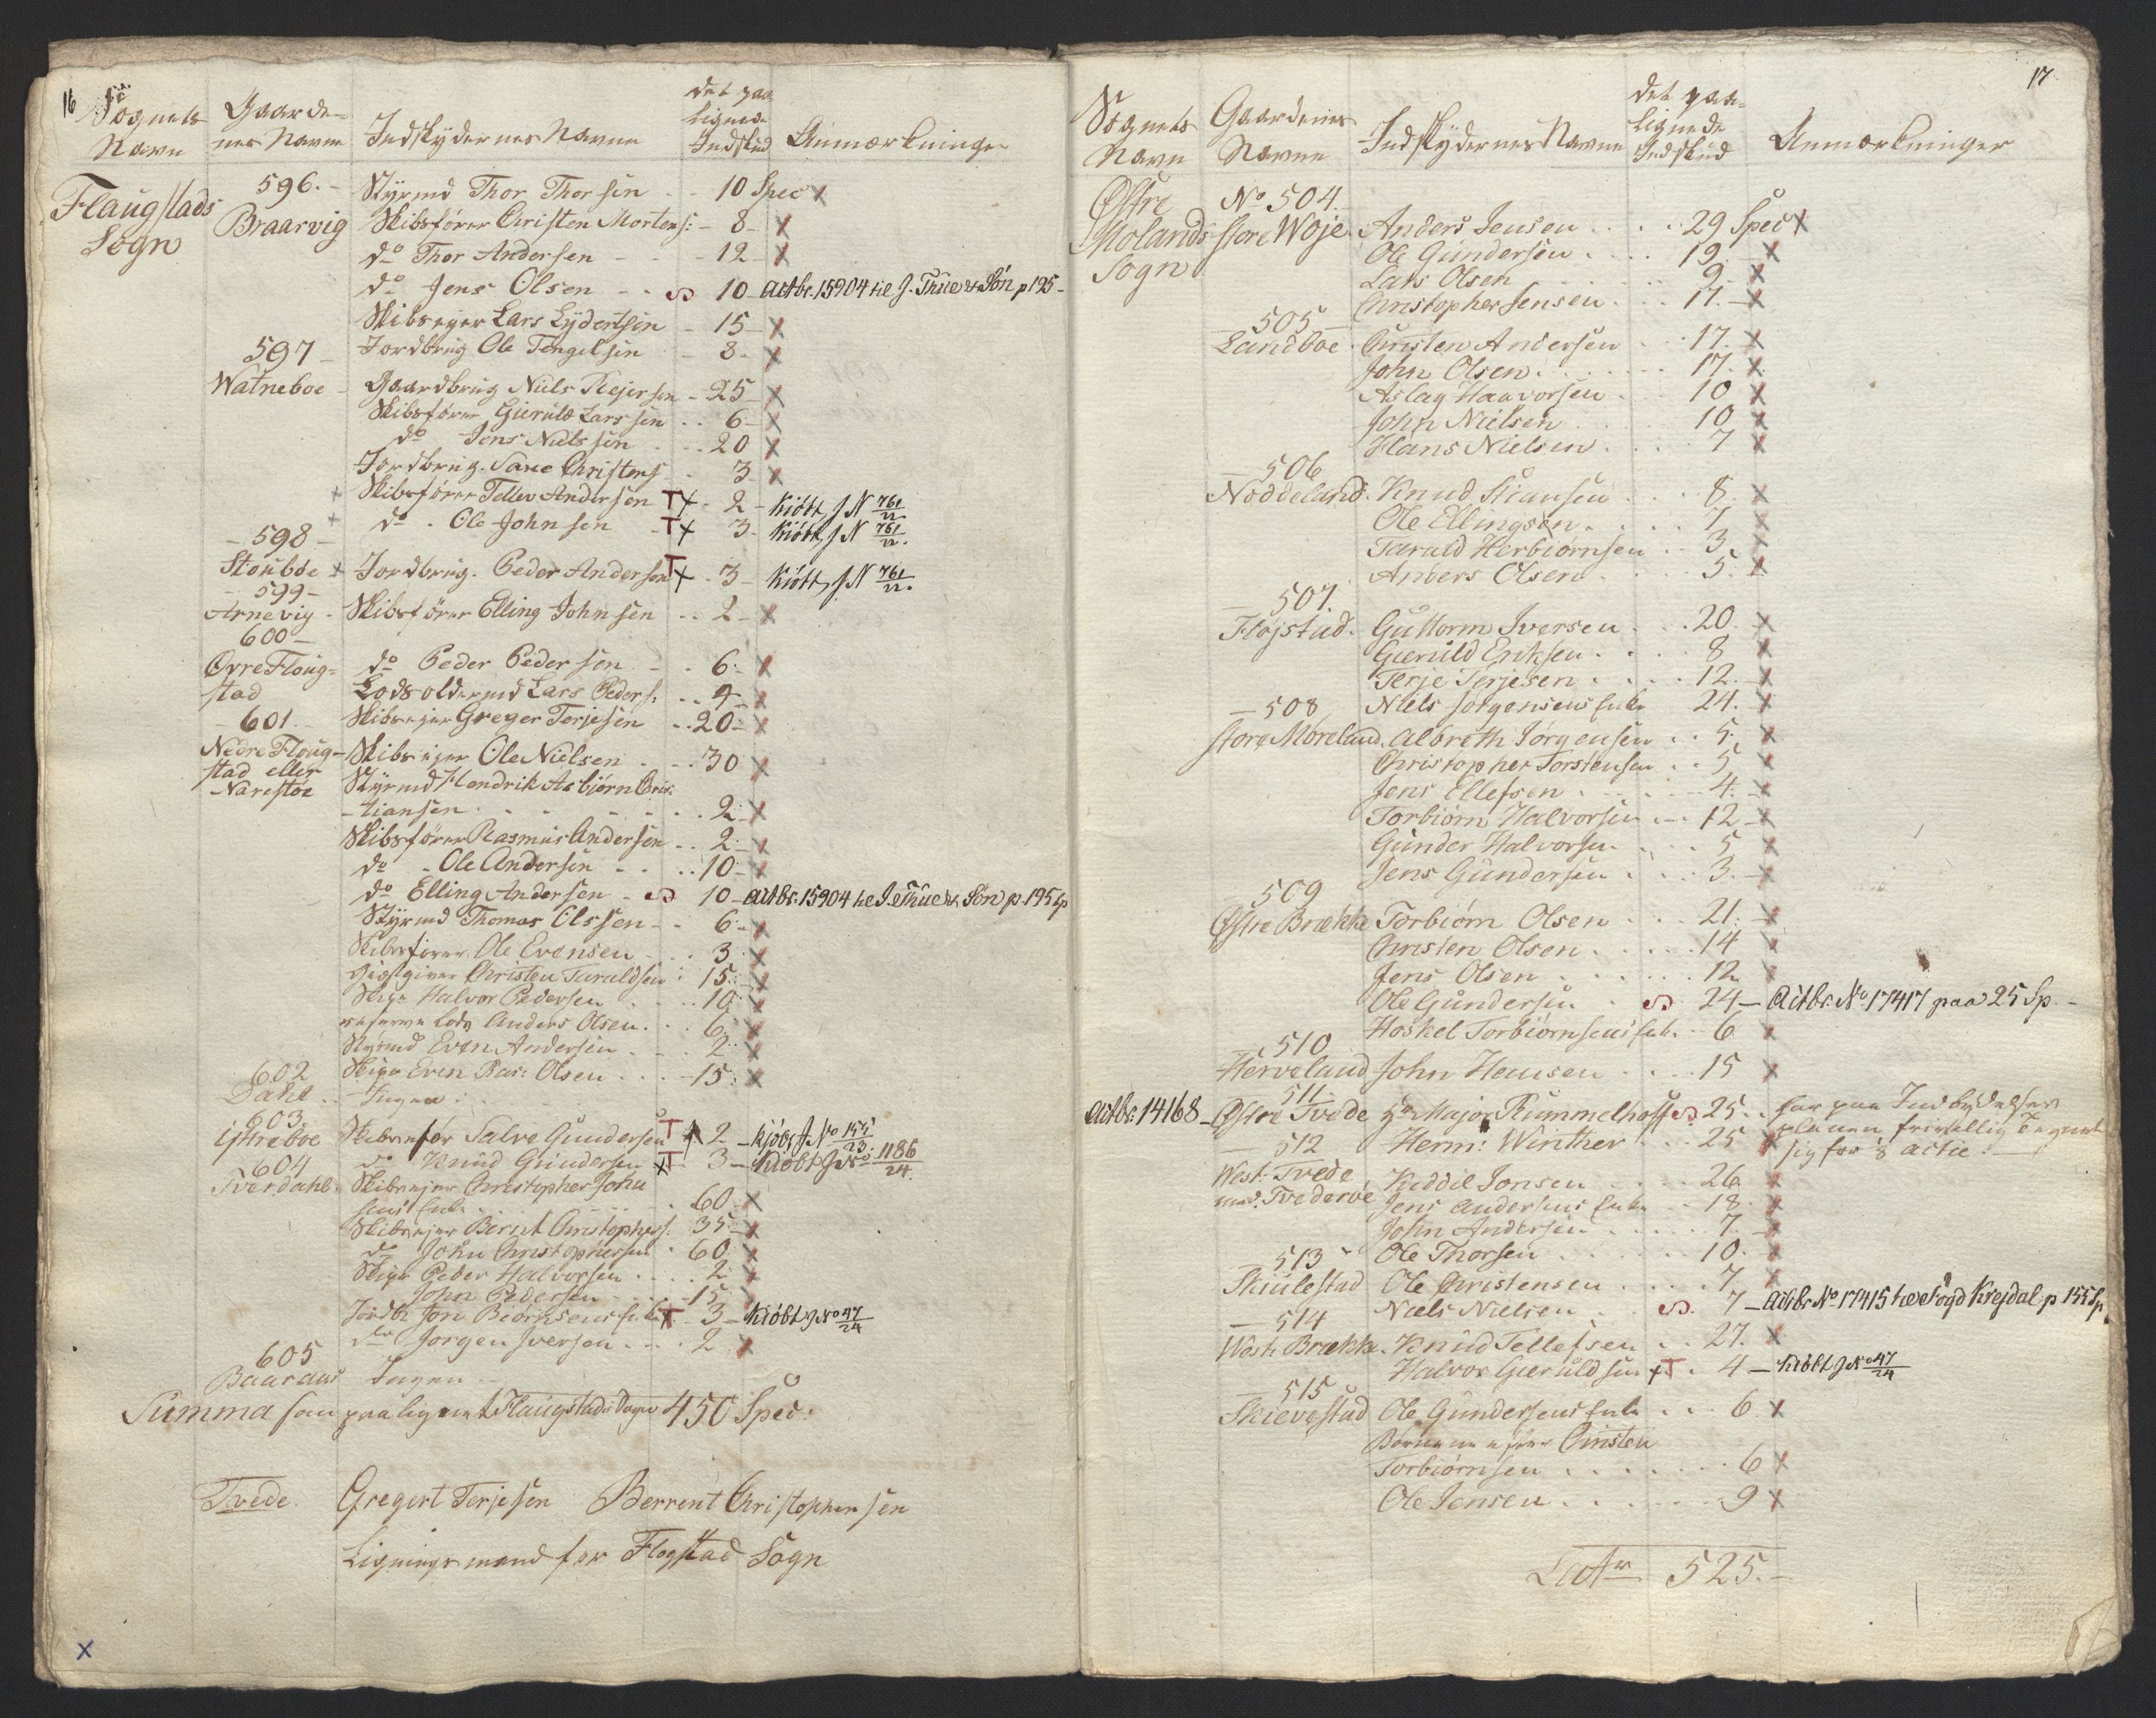 16
Sognets Navn Gaardenes Navne Indskydernes Navne det paalignede Indskud Anmærkninger
Flaugstads Sogn 596. Braarvig Styrmd Thor Thorsen 10 Spec X
Skibsfører Christen Mortens: 8 X
do Thor Andersen 12 X
do Jens Olsen 10 Actbr. 15904 til J. Thue & Søn p 195
Skibseyer Lars Lydertsen 15 X
597 Jordbrug Ole Tengelsen 8 X
Watneboe Gaardbrug Niels Rejersen 25 X
Skibsfører Gieruld Larssen 6 X
do Jens Nielssen 20 X
Jordbrug. Sane Christens 3 X
Skibsfører Tellev Andersen T 2 Kiøbt J N 761/22
598 do Ole Johnsen T 3 Kiøbt J N 761/22.
Stoubøe Jordbrug. Peder Andersen T 3 Kiøbt J. N 761/22.
599 Arnevig Skibsfører Elling Johnsen 2 X
600 Øvre Flougstad do Peder Pedersen 6 X
Lodsoldermd Lars Peders: 4 X
601. Skibseyer Greger Terjesen 20 X
Nedre Flougstad eller Narestøe Skibseyer Ole Nielsen 30 X
Styrmd Hendrik Asbjørn Christiansen 2 X
Skibsfører Rasmus Andersen 2 X
do Ole Andersen 10 X
do Elling Andersen 10 Actbr. 15904 til J. Thue & Søn p 195 Sp
Styrmd Thomas Olssen 6 X
Skibsfører Ole Evensen 3 X
Giestgiver Christen Taraldsen 15 X
Skipr Halvor Pedersen 10 X
reserve Lods Anders Olsen 6 X
Styrmd Even Andersen 2 X
602 Skipr Even Ras: Olsen 15 X
Dahl Ingen
603 Salve Gundersen T 2 Kjøbt J No 155/23
604 do Knud Gundersen T 3 Kiøbt J No 1186/24
Tverdahl Skibseyer Christopher Johnsens Enke 60 X
Skibseyer Bernt Christophers: 35 X
do John Christophersen 60 X
Skipr Peder Halvorsen 2 X
John Pedersen 15 X
Jordb: Jon Biørnsens Enke T 3 Kiøbt J No 47/24
do Jørgen Iversen 2 X
605 Baaraas Ingen
Summa som paalignet Flaugstads Sogn 450 Spec:
Tvede. Gregert Terjesen Berrent Christophersen
Ligningsmænd for Flogstad Sogn
17
Sognets Navn Gaardenes Navne Indskydernes Navne det paalignede Indskud Anmærkninger
Østre Molands Sogn No 504. store Woje Anders Jensen 29 Spec X
Ole Gundersen 19. X
Lars Olsen 9 X
Christopher Jensen 17. X
505 Landboe Christen Andersen 17. X
John Olsen 17. X
Aslag Haavorsen 10 X
John Nielsen 10 X
Hans Nielsen 7 X
506 Noddeland. Knud Stiansen 8 X
Ole Ellingsen 7 X
Tarald Herbiørnsen 3 X
Anders Olsen 5. X
507. Fløjstad. Guttorm Iversen 20 X
Gieruld Eriksen 8 X
Terje Terjesen 12. X
508 Niels Jørgensens Enke 24. X
store Møreland. Albreth Jørgensen 5 X
Christopher Torstensen 5 X
Jens Ellefsen 4 X
Torbiørn Halvorsen 12 X
Gunder Halvorsen 5 X
Jens Gundersen 3. X
509 Østre Brække Torbiørn Olsen 21. X
Christen Olsen 14 X
Jens Olsen 12 X
Ole Gundersen 24 Actbr. No 17417 paa 25 Sp.
Hoskel Torbiørnsens Enke 6 X
510 Herveland John Hansen 15 X
Actbr. 14168 511. Østre Tvede Hr Major Rummelhoff 25. har paa Indbydelses
512 Herm: Winther 25 X planen frivillig tegnet
sig for 8 actie.
West: Tvede med Tvederöe Kiddil Jonsen 26 X
Jens Andersens Enke 18. X
John Andersen 7 X
513 Ole Thorsen 10. X
Skiulestad Ole Christensen 7 X
514 Niels Nielsen 7 Actbr No 17415 til Foged Krejdal p 155 Sp.
West: Brække. Knud Tellefsen 27. X
Halvor Gieruldsen T 4 Kiøbt J No 47/24
515 Skievestad Ole Gundersens Enke 6. X
Børnene efter Christen
Torbiørnsen 6 X
Ole Jensen 9 X
Latr 525.
X